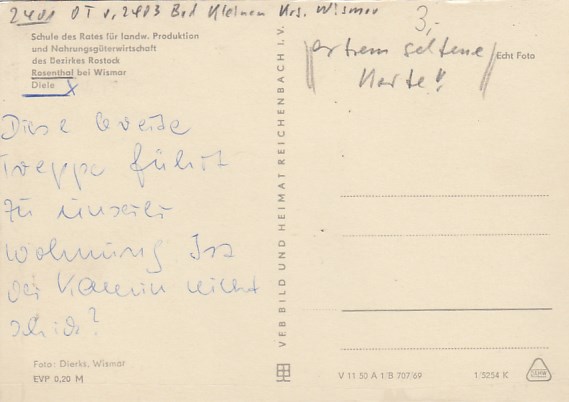 2401 OT v. 2403 Bad Kleinen Krs. Wismar
3,-
extrem seltene
Karte!!
Schule des Rates für landw. Produktion
und Nahrungsgüterwirtschaft
des Bezirkes Rostock
Rosenthal bei Wismar
Diele x
Echt Foto
Diese breite
Treppe führt
zu unserer
Wohnung Ist
der Kamin nicht
schick?
VEB BILD UND HEIMAT REICHENBACH I.V.
Foto: Dierks, Wismar
EVP 0,20 M
V 11 50 A 1/B 707/69
1/3254 K